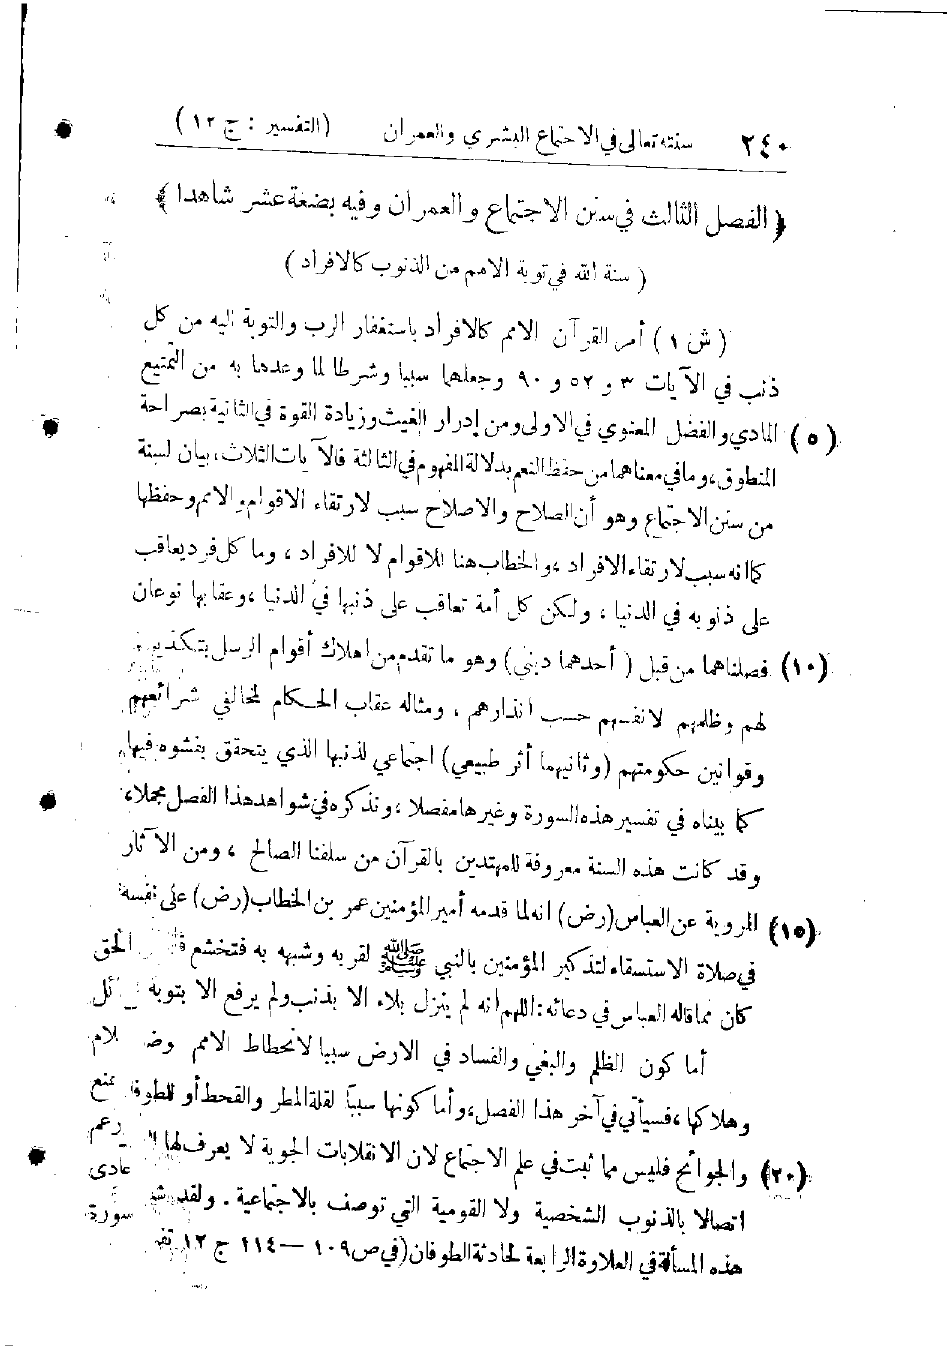 ٢٤٠ سنته تعالى في الاجتماع البشري والعمران (التفسير : ج ١٢)
﴿ الفصل الثالث في سنن الاجتماع والعمران وفيه بضعة عشر شاهدا ﴾
( سنة الله في توبة الامم من الذنوب كالافراد )
( ش ١ ) أمر القرآن الامم كالافراد باستغفار الرب والتوبة اليه من كل
ذنب في الآيات ٣ و ٥٢ و ٩٠ وجعلهما سببا وشرطا لما وعدها به من التمتيع
(٥) المادي والفضل المعنوي في الاولى ومن إدرار الغيث وزيادة القوة في الثانية بصراحة
المنطوق، وما في معناهما من حفظ النعم بدلالة المفهوم في الثالثة فالآيات الثلاث، بيان لسنة
من سنن الاجتماع وهو أن الصلاح والاصلاح سبب لارتقاء الاقوام والامم وحفظها
كما انه سبب لارتقاء الافراد ، والخطاب هنا للاقوام لا للافراد ، وما كل فرد يعاقب
على ذنوبه في الدنيا ، ولكن كل أمة تعاقب على ذنبها في الدنيا ، وعقابها نوعان
(١٠) فصلناهما من قبل ( أحدهما ديني) وهو ما تقدم من اهلاك أقوام الرسل بتكذيبهم
لهم وظلمهم لانفسهم حسب انذارهم ، ومثاله عقاب الحكام لمخالفي شرائعهم
وقوانين حكومتهم (وثانيهما أثر طبيعي) اجتماعي لذنبها الذي يتحقق بفشوه فيها،
كما بيناه في تفسير هذه السورة وغيرها مفصلا ، ونذكره في شواهد هذا الفصل مجملا،
وقد كانت هذه السنة معروفة للمهتدين بالقرآن من سلفنا الصالح ، ومن الآثار
(١٥) المروية عن العباس (رض) انه لما قدمه أمير المؤمنين عمر بن الخطاب (رض) على نفسه
في صلاة الاستسقاء لتذكير المؤمنين بالنبي ﷺ لقربه وشبهه به فتخشع الحق
كان مما قاله العباس في دعائه : اللهم انه لم ينزل بلاء الا بذنب ولم يرفع الا بتوبة
أما كون الظلم والبغي والفساد في الارض سببا لانحطاط الامم
وهلاكها ، فسيأتي في آخر هذا الفصل، وأما كونها سببا لقلة المطر والقحط أو للطوفان
(٢٠) والجوائح فليس مما ثبت في علم الاجتماع لان الانقلابات الجوية لا يعرف لها
اتصالا بالذنوب الشخصية ولا القومية التي توصف بالاجتماعية . ولقد سورة
هذه المسألة في العلاوة الرابعة لحادثة الطوفان (في ص ١٠٩ — ١١٤ ج ١٢